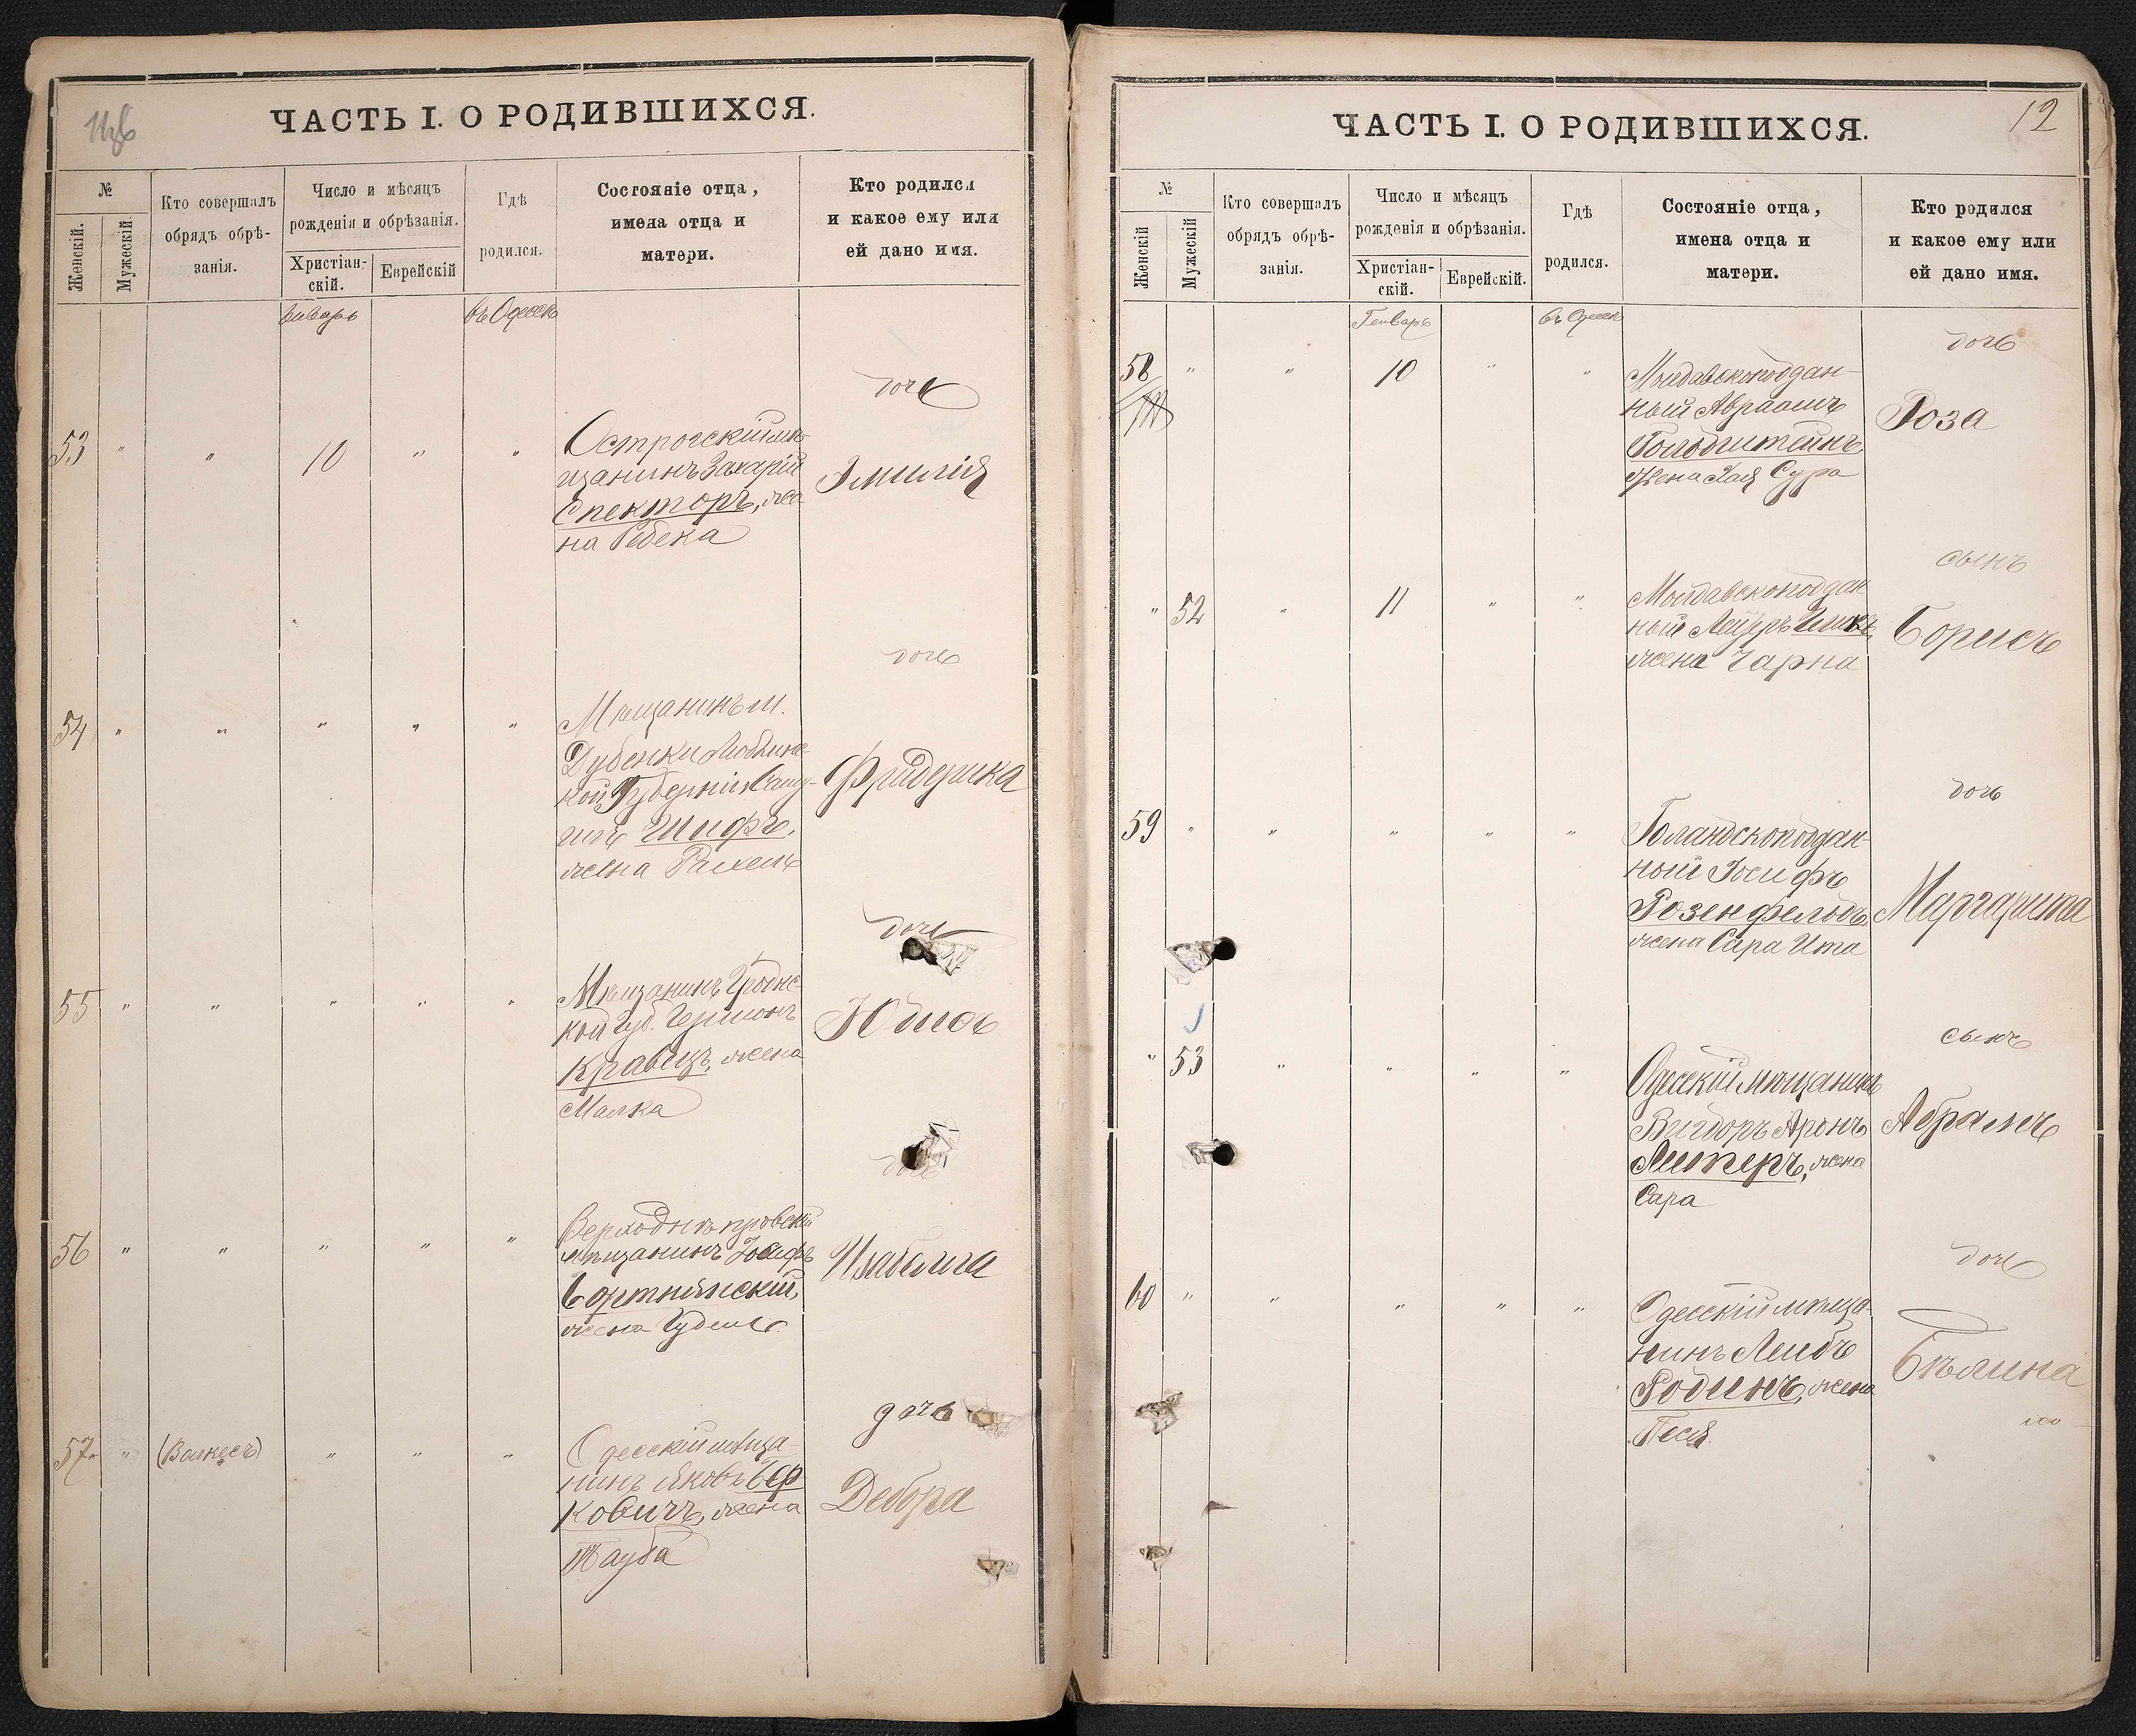 ЧАСТЬ I. О РОДИВШИХСЯ.
№
Женскій.
Мужескій.
Кто совершалъ
обрядъ обрѣ-
занія.
Число и мѣсяцъ
рожденія и обрѣзанія.
Христіан-
скій.
Еврейскій
Гдѣ
родился.
Состояніе отца,
имена отца и
матери.
Кто родился
и какое ему или
ей дано имя.
въ Одессѣ
дочь
53 " " 10 " "
Острогскій мѣ-
щанинъ Захарій
Спекторъ, же
на Ребека
Эмилія
дочь
54 " " " " "
Мѣщанинъ м.
Дубенки Люблинс
кой Губерніи
Шифъ,
жена Рахель
Фридерика
дочь
55 " " " " "
Мѣщанинъ Гродне
кой Губ. Гершонъ
Кравецъ, жена
Малка
Юдись
дочь
56 " " " " "
Верходнѣпровскій
мѣщанинъ Іосифъ
Бортнянскій,
жена Гудель
Изабелла
дочь
57 " (Волкесъ) " " "
Одесскій мѣща-
нинъ Яковъ Бер
ковичъ, жена
Тауба
Дебора
ЧАСТЬ I. О РОДИВШИХСЯ.
12
№
Женскій
Мужескій
Кто совершалъ
обрядъ обрѣ-
занія.
Число и мѣсяцъ
рожденія и обрѣзанія.
Христіан-
скій.
Еврейскій.
Гдѣ
родился.
Состояніе отца,
имена отца и
матери.
Кто родился
и какое ему или
ей дано имя.
Генварь
въ Одессѣ
дочь
58 " " 10 " "
Молдавскоподдан-
ный Авраамъ
Гольдштейнъ,
жена Хая Сура
Роза
сынъ
" 52 " 11 " "
Молдавскоподдан
ный Лейзеръ
жена Чарна
Борисъ
дочь
59 " " " " "
Голандскоподдан-
ный Іосифъ
Розенфельдъ,
жена Сара Ита
Маргарита
сынъ
" 53 " " " "
Одесскій мѣщанинъ
Вигдоръ Аронъ
Литеръ, жена
Сара
Абрамъ
дочь
60 " " " " "
Одесскій мѣща-
нинъ Лейбъ
Родинъ, жена
Песя
Бѣлина